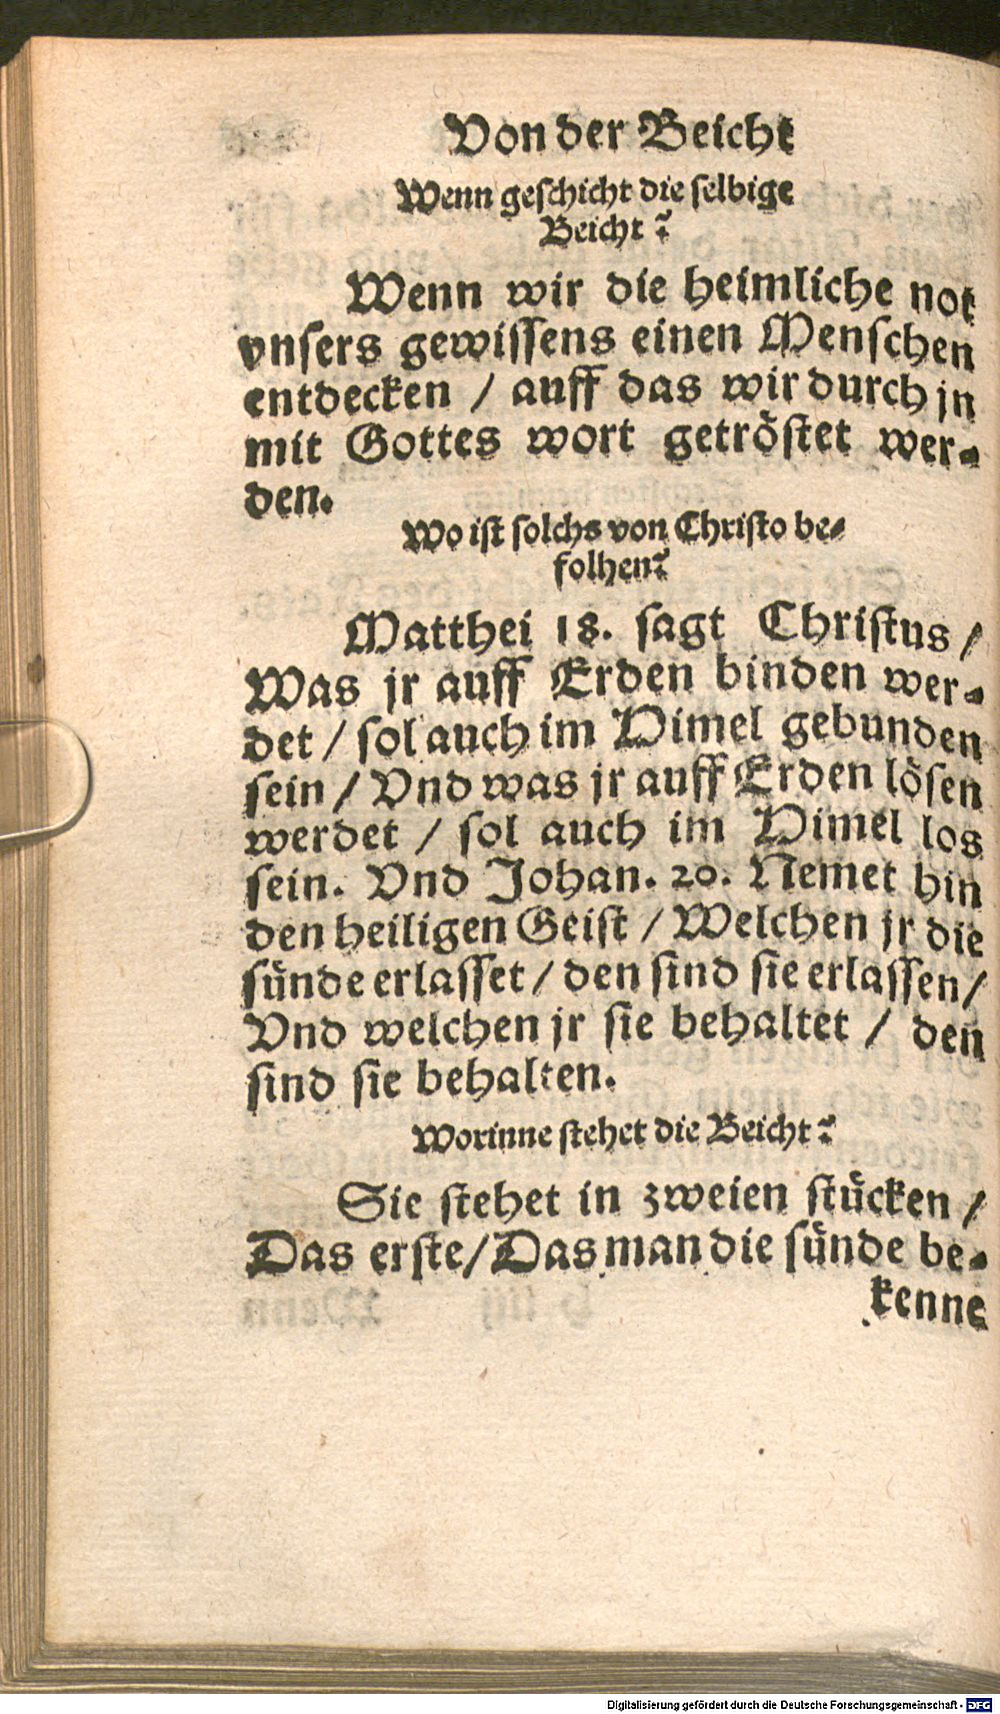 Von der Beicht
Wenn geschicht die selbige
Beicht?
Wenn wir die heimliche not
vnsers gewissens einen Menschen
entdecken / auff das wir durch jn
mit Gottes wort getröstet wer-
den.
Wo ist solchs von Christo be-
folhen?
Matthei 18. sagt Christus /
Was jr auff Erden binden wer-
det / sol auch im Himel gebunden
sein / Vnd was jr auff Erden lösen
werdet / sol auch im Himel los
sein. Vnd Johan. 20. Nemet hin
den heiligen Geist / Welchen jr die
sünde erlasset / den sind sie erlassen /
Vnd welchen jr sie behaltet / den
sind sie behalten.
Worinne stehet die Beicht?
Sie stehet in zweien stücken /
Das erste / Das man die sünde be-
kenne
Digitalisierung gefördert durch die Deutsche Forschungsgemeinschaft - DFG